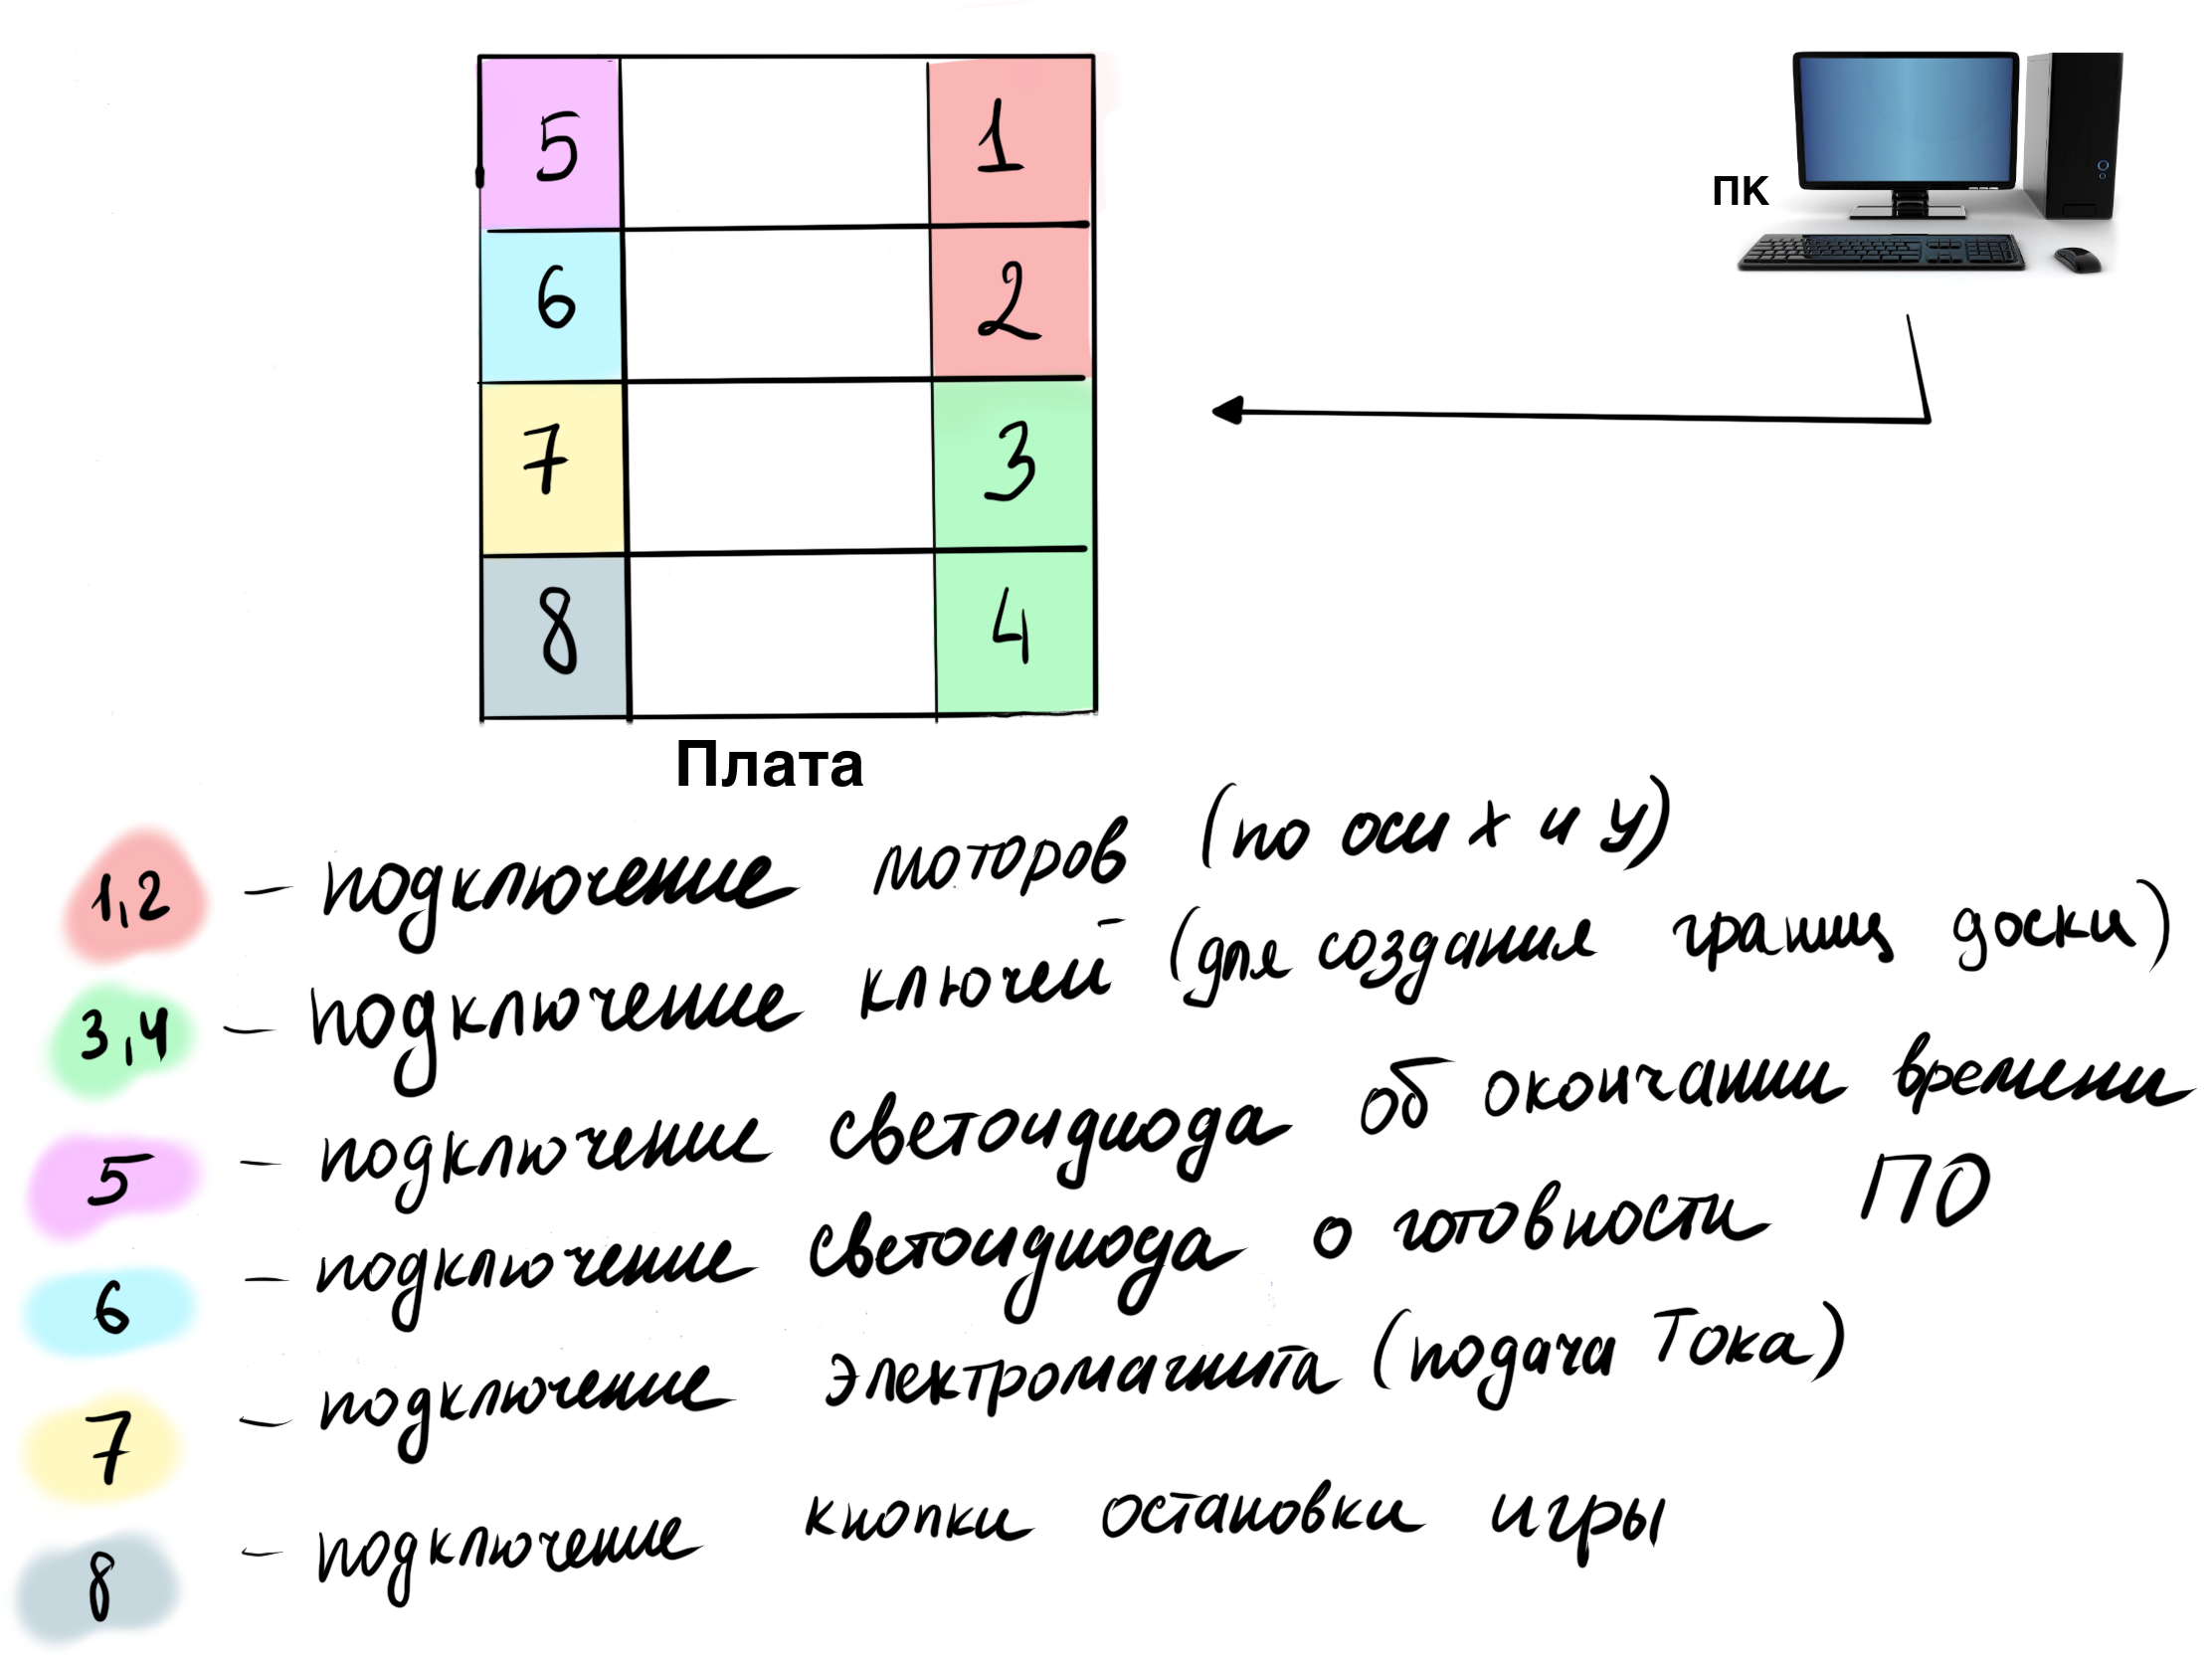 5 1
ПК
6 2
7 3
8 4
Плата
1,2 – подключение моторов (по оси х и у)
3,4 – подключение ключей (для создания границ доски)
5 – подключение светоидиода об окончании времени
6 – подключение светоидиода о готовности ПО
7 – подключение электромагнита (подача тока)
8 – подключение кнопки остановки игры